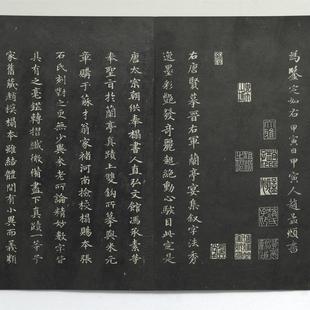 為鑒定如右甲寅日甲寅人趙孟頫書
右唐賢摹晉右軍蘭亭宴集敘字法秀
逸墨彩艷發奇麗超絕動心駭目此定是
唐太宗朝供奉搨書人直弘文館馮承素等
奉聖旨於蘭亭真蹟上雙鈎所摹與米元
章購于蘇才翁家褚河南檢校搨賜本張
石氏刻對之更無少異米老所論精妙數字皆
具有之毫鋩轉摺纖微備盡下真蹟一等予
家舊藏趙模搨本雖結體間有小異而義類